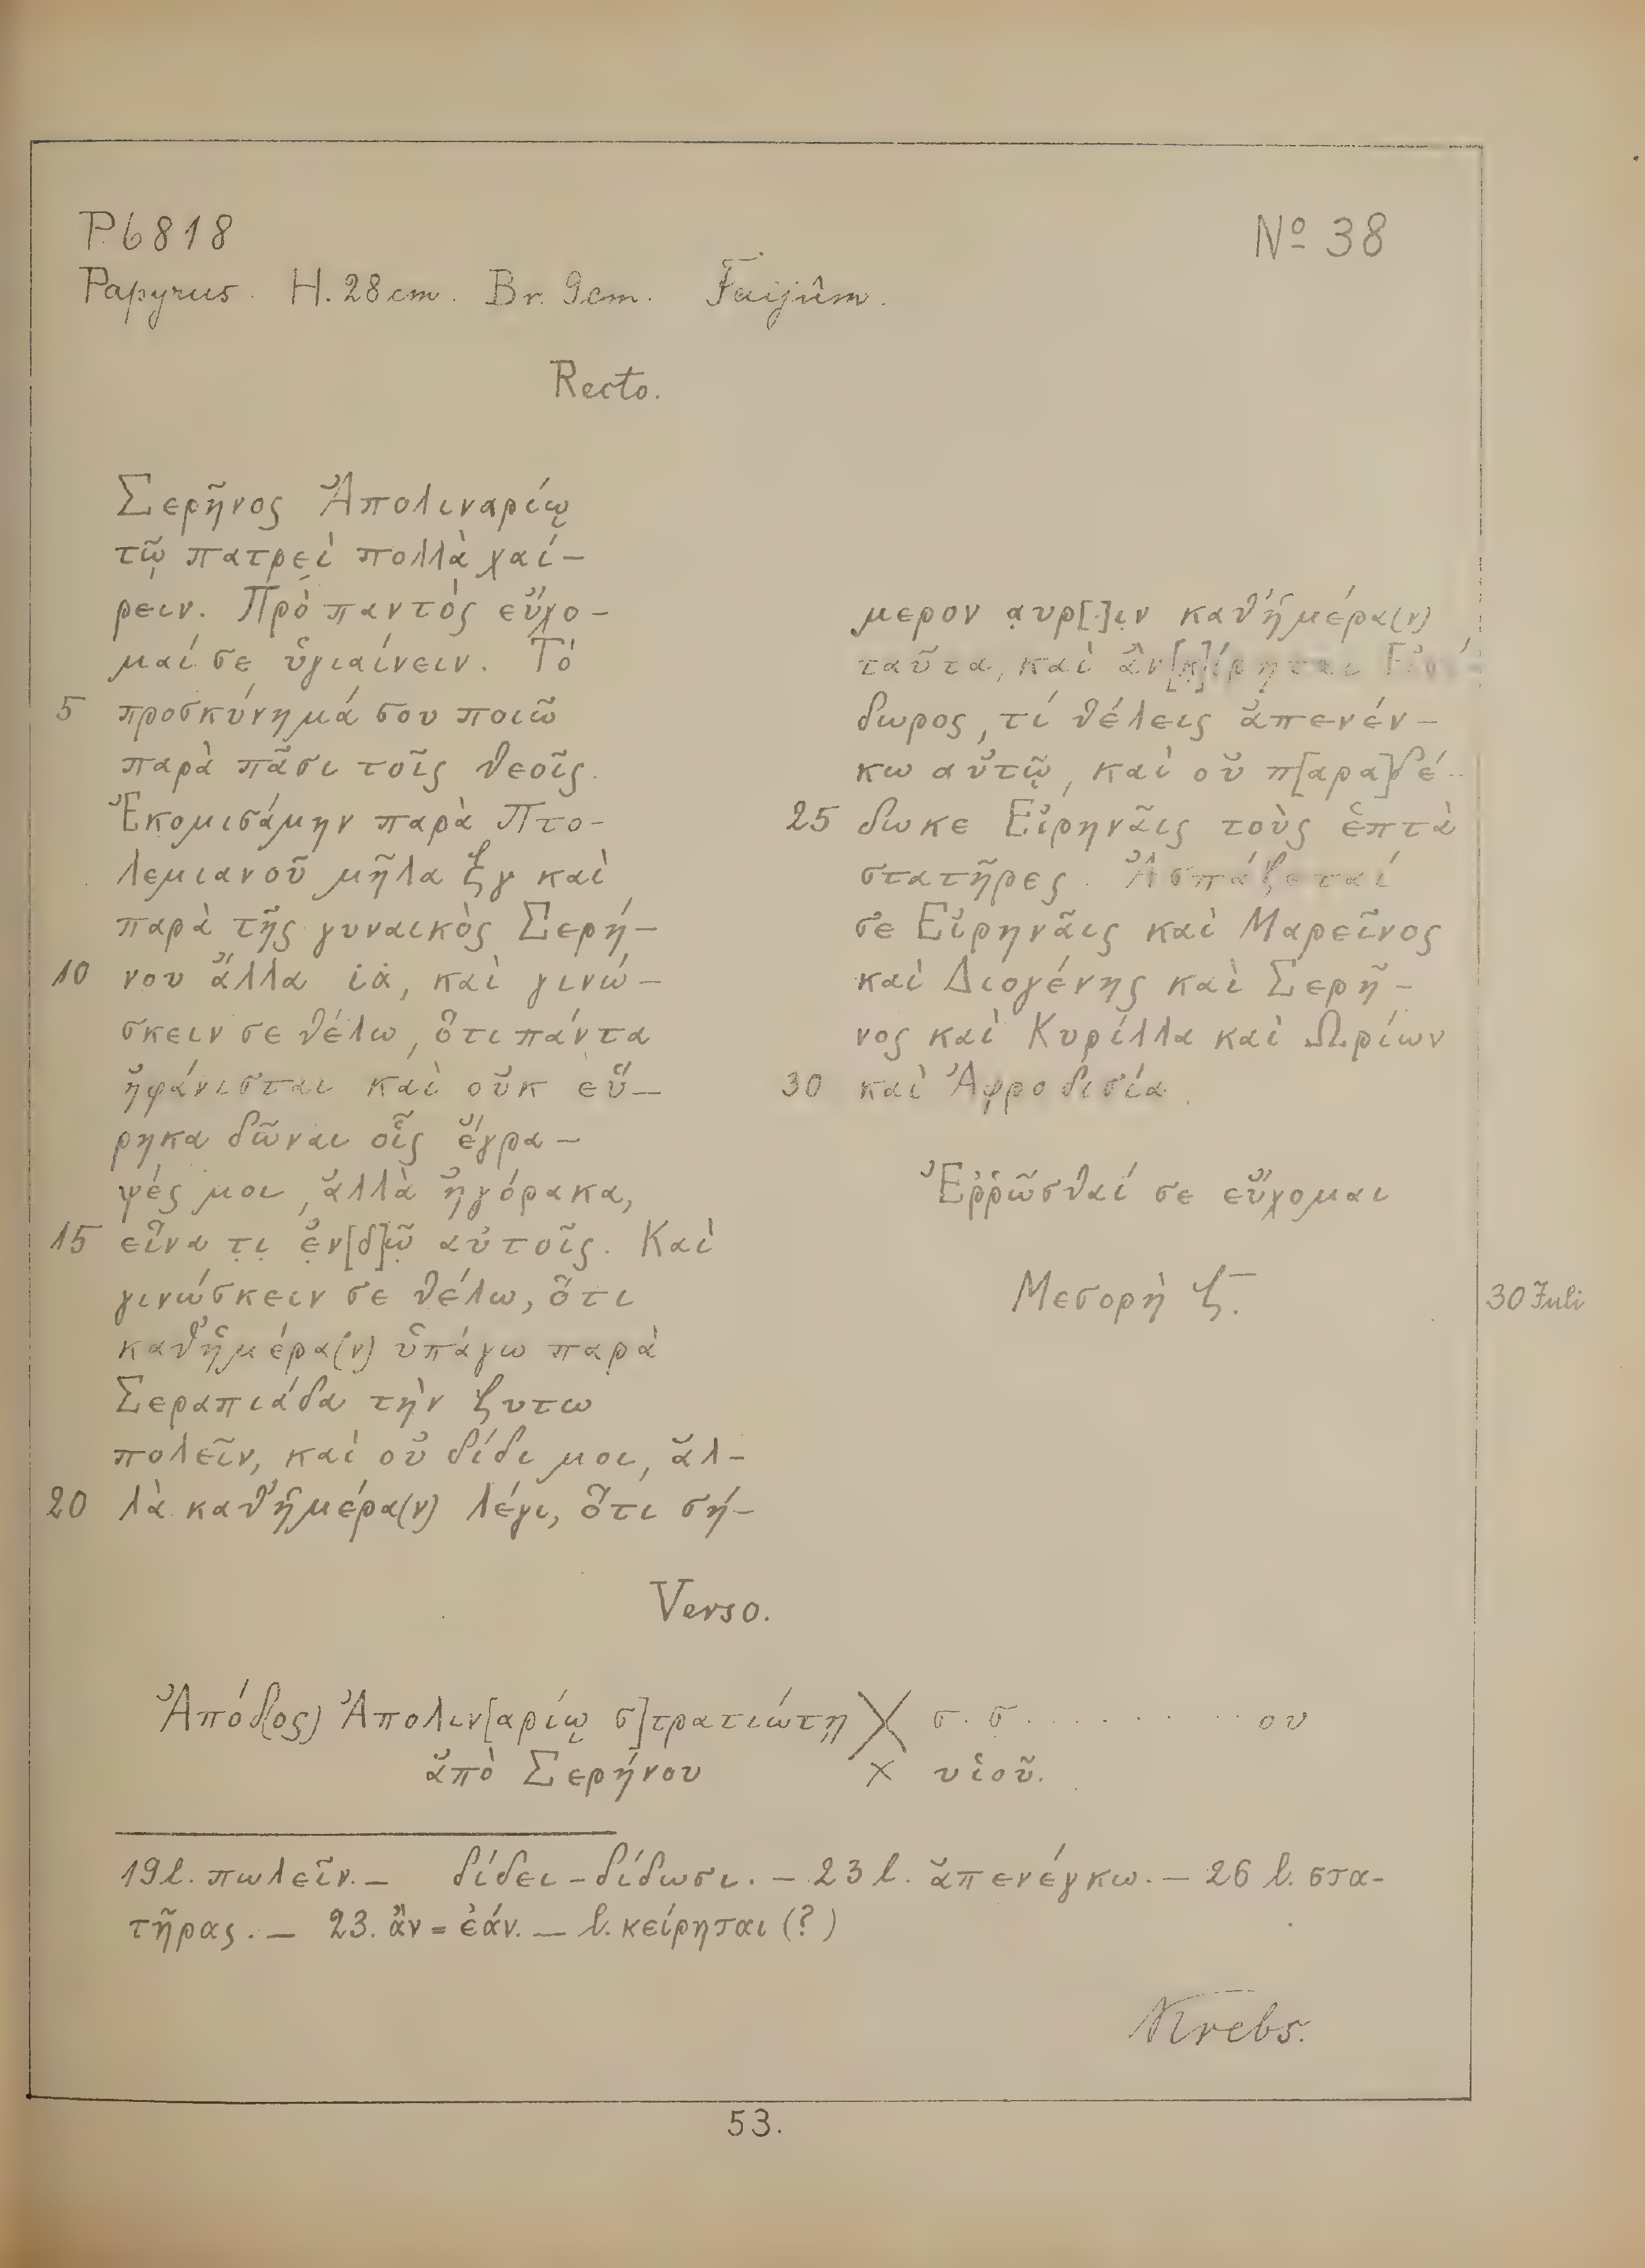 P.6818
Nº 38
Papyrus. H. 28 cm. Br. 9 cm. Faijûm.
Recto.
Σερῆνος Ἀπολιναρίῳ
τῷ πατρε̣ὶ πολλὰ χαί-
ρειν. Πρὸ παντὸς εὔχο-
μαί σε ὑγιαίνειν. Τὸ
5 προσκύνημά σου ποιῶ
παρὰ πᾶσι τοῖς θεοῖς.
Ἐκομισάμην παρὰ Πτο-
λεμιανοῦ μῆλα ξγ καὶ
παρὰ τῆς γυναικὸς Σερή-
10 νου ἄλλα ϊα, καὶ γινώ-
σκειν σε θέλω, ὅτι πάντα
ἠφάνισται καὶ οὐκ εὕ-
ρηκα δῶναι οἷς ἔγρα-
ψές μοι, ἀλλὰ ἠγόρακα,
15 εἵνα τ̣ι̣ ἐ̣ν[δ]ῶ̣ αὐτοῖς. Καὶ
γινώσκειν σε θέλω, ὅτι
καθ' ἡμέρα(ν) ὑπάγω παρὰ
Σεραπιάδα τὴν ζυτω
πολεῖν, καὶ οὐ δίδι μοι, ἀλ-
20 λὰ καθ' ἡμέρα(ν) λέγι, ὅτι σή-
μερον α̣υρ[.]ι̣ν καθ' ἡμέρα(ν)
ταῦτα, καὶ ἂν [κ]ίρηται
δωρος, τί θέλεις ἀπενέν-
κω αὐτῷ, καὶ οὐ π[αρα]δέ-
25 δωκε Εἰρηνᾶις τοὺς ἑπτὰ
στατῆρες. Ἀσπάζεταί
σε Εἰρηνᾶις καὶ Μαρεῖνος
καὶ Διογένης καὶ Σερῆ-
νος καὶ Κυρίλλα καὶ Ὡρίων
30 καὶ Ἀφροδισία.
Ἐῤῥῶσθαί σε εὔχομαι
Μεσορὴ ζ̅.
30 Juli
Verso.
Ἀπόδ(ος) Ἀπολιν[αρίῳ σ]τρατιώτῃ X σ. σ. . . . . . . . ου
ἀπὸ Σερήνου × υἱοῦ.
19 l. πωλεῖν. — δίδει - δίδωσι. — 23 l. ἀπενέγκω. — 26 l. στα-
τῆρας. — 23. ἂν = ἐάν. — l. κείρηται (?)
Krebs.
53.